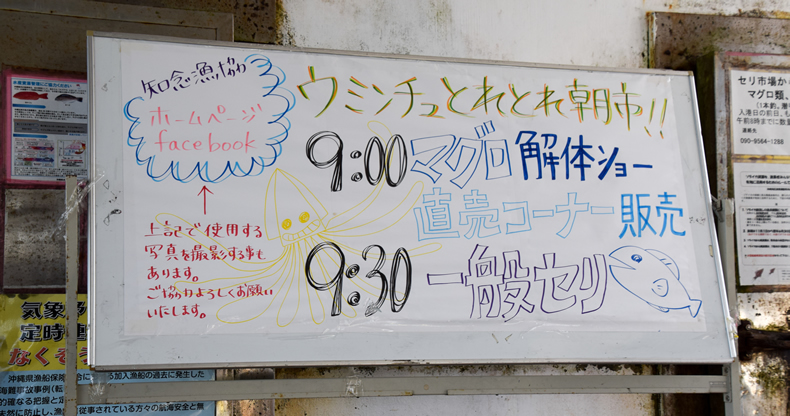 知念漁協
ホームページ
facebook
上記で使用する
写真を撮影する事も
あります。
ご協力よろしくお願い
いたします。
ウミンチュとれとれ朝市!!
9:00 マグロ解体ショー
直売コーナー販売
9:30 一般セリ
セリ市場か
マグロ類、
午前8時までに数
連絡先
090-9564-1288
気象
定時
なくそ
沖縄県漁船保険
加入漁船の過去に発生した
海難事故事例(転
的確な把握と定
未然に防止し、漁
従事されている方々の航海安全と無